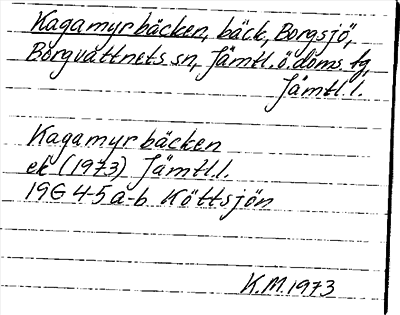 Kagamyrbäcken, bäck, Borgsjö,
Borgvattnets sn, Jämtl. ö. doms. tg,
Jämtl. l.
Kagamyrbäcken
ek (1973) Jämtl. l.
19G 4-5 a-b Köttsjön
K.M. 1973